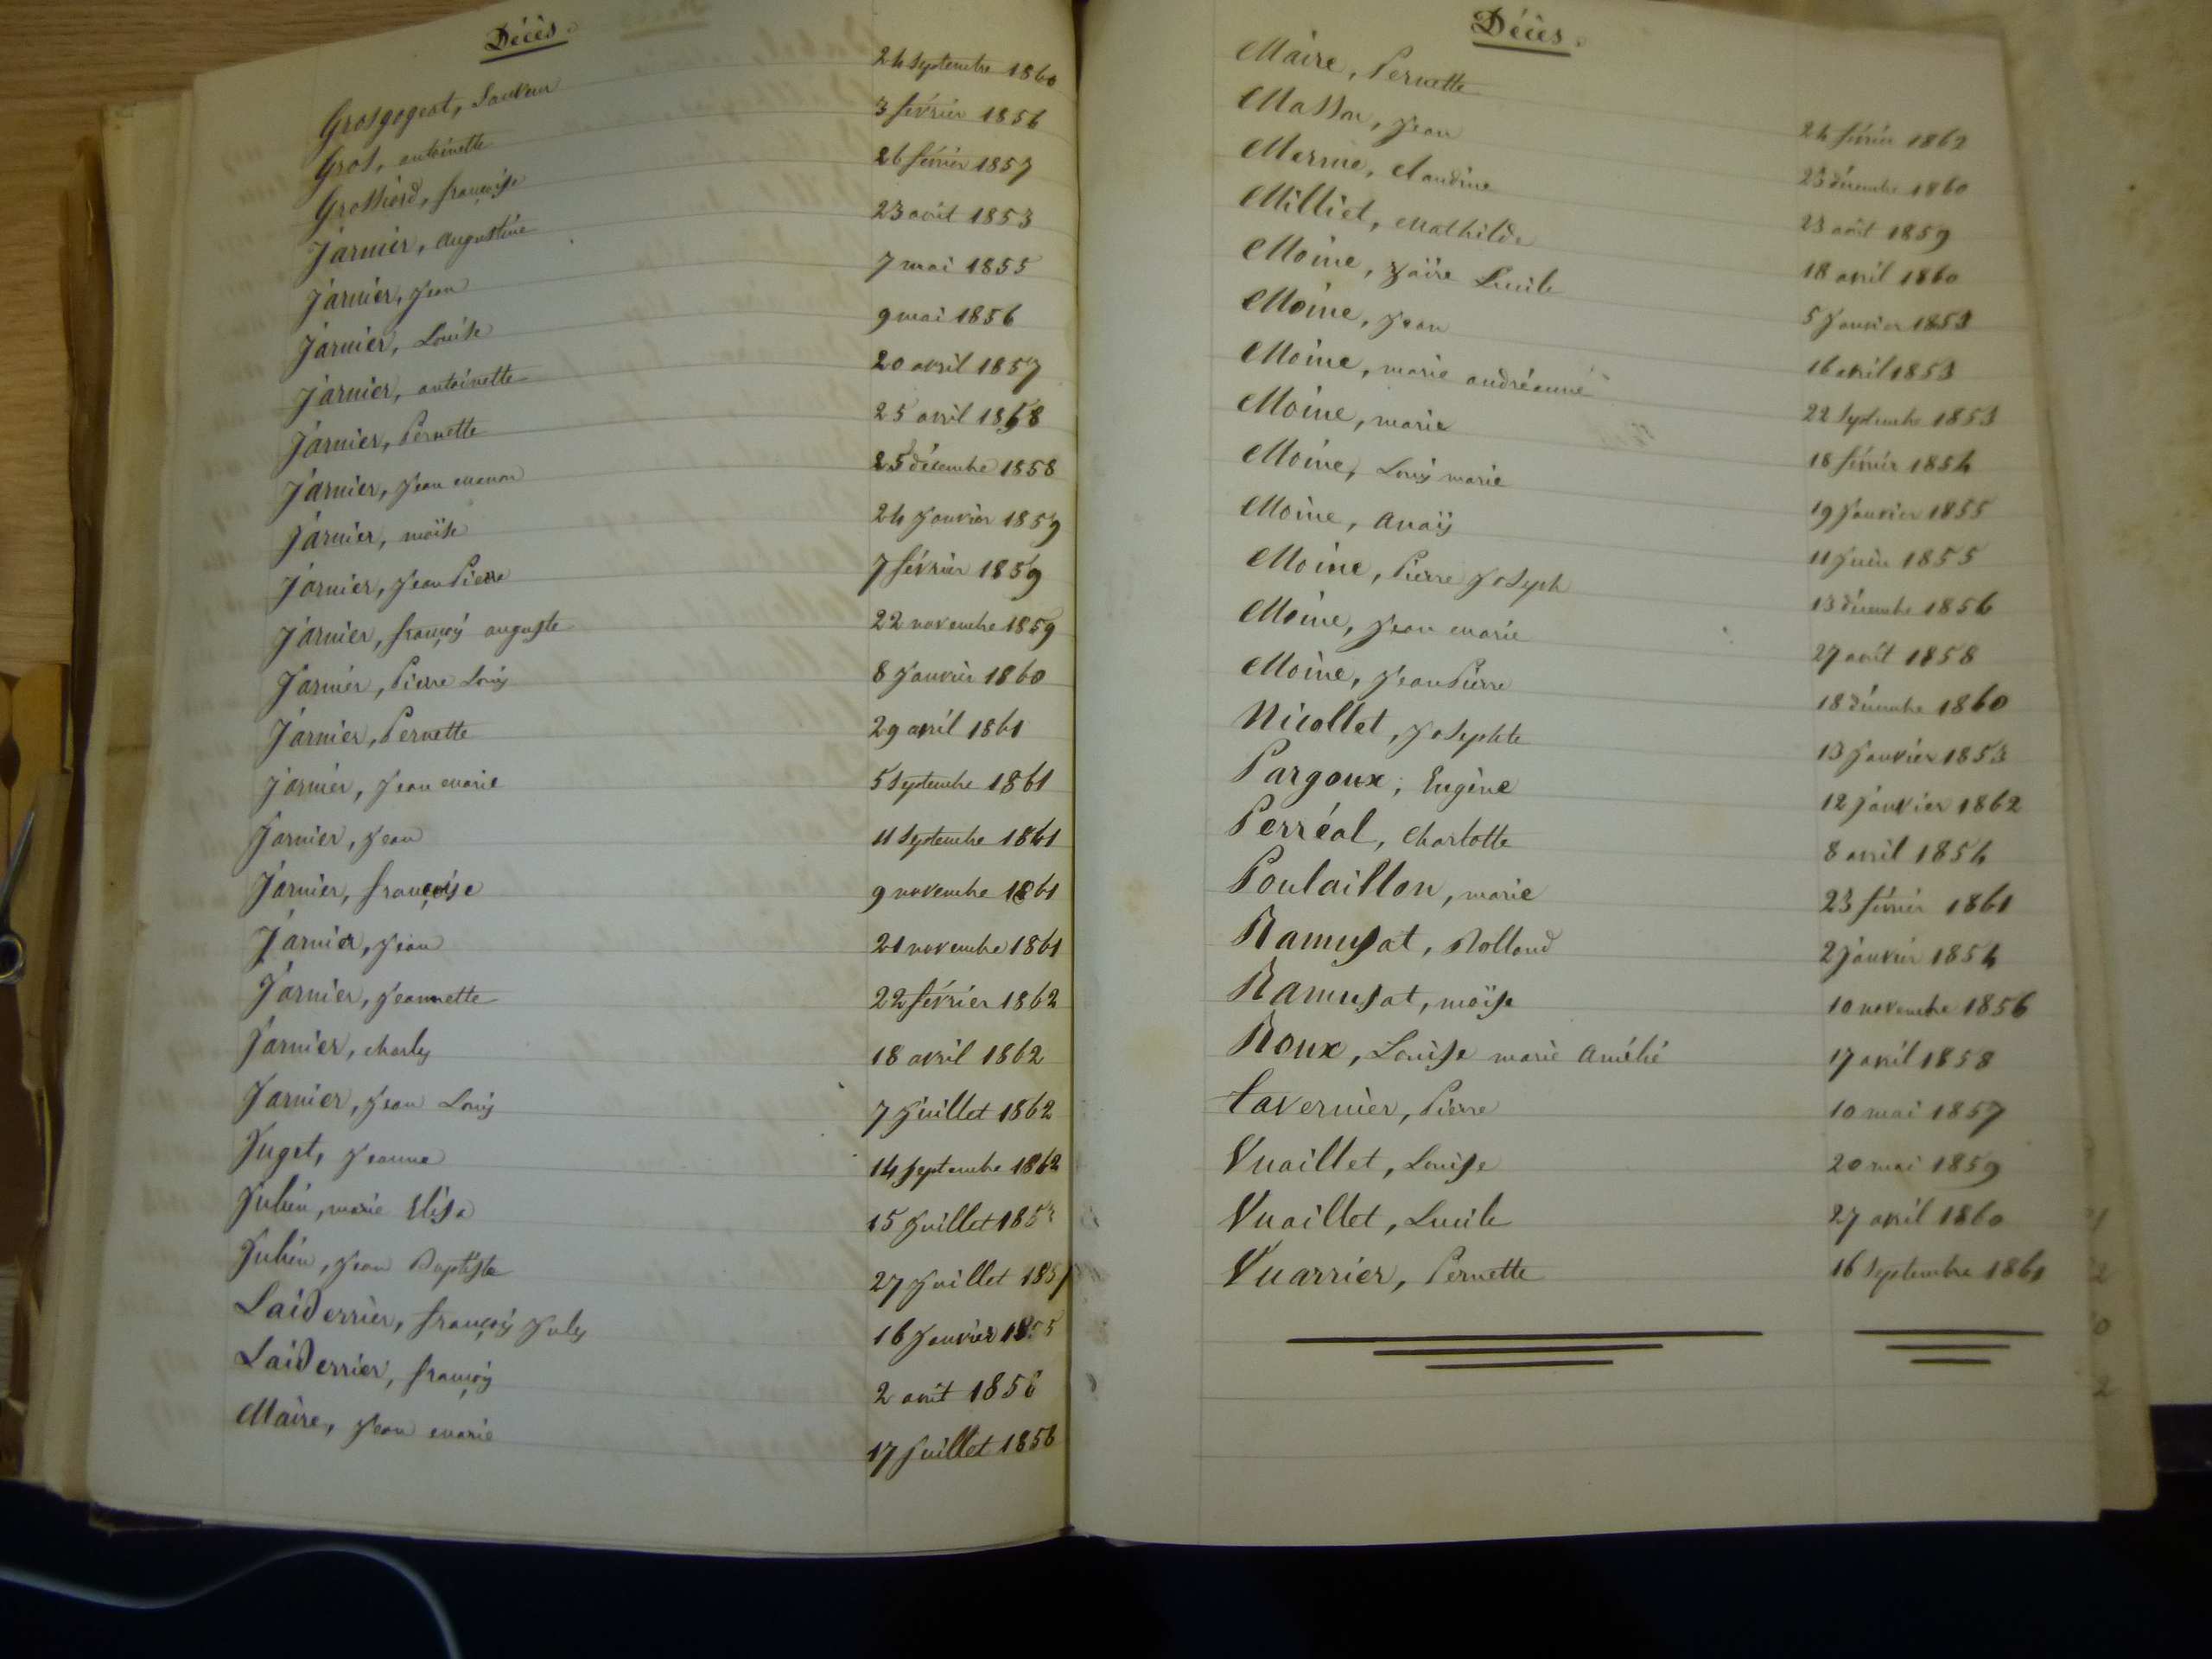 Décès.
Grosgogeat, Sauveur 24 Septembre 1860
Gros, antoinette 3 février 1856
Grossiord, françoise 26 février 1857
Jarnier, augustine 23 août 1853
Jarnier, Jean 7 mai 1855
Jarnier, Louise 9 mai 1856
Jarnier, antoinette 20 avril 1857
Jarnier, Pernette 25 avril 1858
Jarnier, Jean marie 25 décembre 1858
Jarnier, moïse 24 Janvier 1859
Jarnier, Jean Pierre 7 février 1859
Jarnier, françois auguste 22 novembre 1859
Jarnier, Pierre Louis 8 Janvier 1860
Jarnier, Pernette 29 avril 1861
Jarnier, Jean marie 5 Septembre 1861
Jarnier, Jean 11 Septembre 1861
Jarnier, françoise 9 novembre 1861
Jarnier, Jean 21 novembre 1861
Jarnier, Jeannette 22 février 1862
Jarnier, charles 18 avril 1862
Jarnier, Jean Louis 7 Juillet 1862
Juget, Jeanne 14 Septembre 1862
Julien, marie Elisa 15 Juillet
Julien, Jean Baptiste 27 Juillet
Laiderrier, françois Jules 16 Janvier 1855
Laiderrier, françois 2 août 1856
Maire, Jean marie 17 Juillet 1856
Décès.
Maire, Pernette 24 février 1862
Masson, Jean 23 décembre 1860
Merme, Claudine 23 août 1859
Milliet, Mathilde 18 avril 1860
Moine, Zaïre Lucile 5 Janvier 1853
Moine, Jean 16 avril 1853
Moine, marie andréanne 22 Septembre 1853
Moine, marie 18 février 1854
Moine, Louis marie 19 Janvier 1855
Moine, Anaïs 11 Juin 1855
Moine, Pierre Joseph 13 décembre 1856
Moine, Jean marie 27 août 1858
Moine, Jean Pierre 18 décembre 1860
Nicollet, Josephte 13 Janvier 1853
Pargoux, Eugène 12 Janvier 1862
Perréal, Charlotte 8 avril 1854
Poulaillon, marie 23 février 1861
Ramusat, Rolland 2 Janvier 1854
Ramusat, moïse 10 novembre 1856
Roux, Louise marie Amélié 17 avril 1858
Tavernier, Pierre 10 mai 1857
Vuaillet, Louise 20 mai 1859
Vuaillet, Lucile 27 avril 1860
Vuarrier, Pernette 16 Septembre 1861